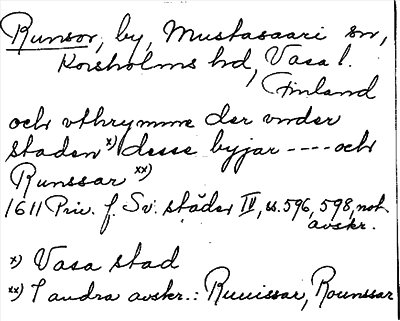 Runsor, by, Mustasaari sn,
Korsholms hd, Vasa l.
Finland
och vthrymme der vnder
staden x) desse byjar ---- och
Runssar xx)
1611 Priv. f. Sv. städer IV, ss. 596, 598, not
avskr.
x) Vasa stad
xx) I andra avskr.: Ruuissar, Rounssar